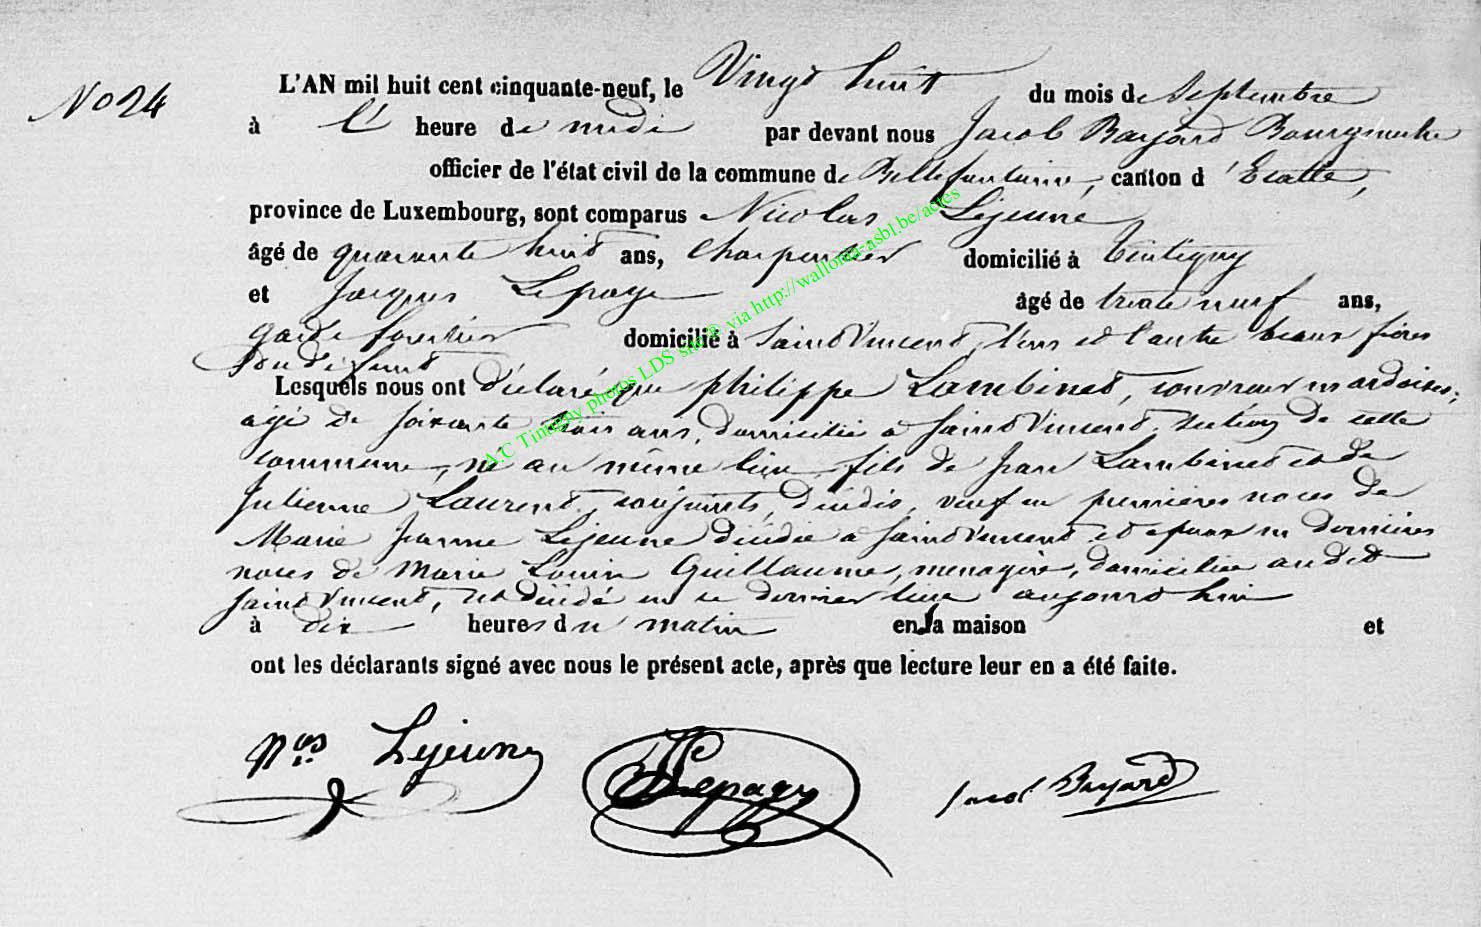 No 24
L'AN mil huit cent cinquante-neuf, le Vingt huit du mois de Septembre
à l' heure de midi par devant nous Jacob Bayard Bourgmestre
officier de l'état civil de la commune de Bellefontaine, canton d'Etalle,
province de Luxembourg, sont comparus Nicolas Lejeune
âgé de quarante huit ans, charpentier domicilié à tintigny
et Jacques Lepage âgé de trente neuf ans,
garde forestier domicilié à Saint Vincent, l'un et l'autre beaux frères
du défunt
Lesquels nous ont déclaré que philippe Lambinet, couvreur en ardoises,
âgé de soixante trois ans, domicilié à Saint Vincent, section de cette
commune, né au même lieu, fils de jean Lambinet et de
Julienne Laurent, conjoints, décédés, veuf en premières noces de
Marie Jeanne Lejeune décédée à Saint Vincent et époux en dernières
noces de Marie Louise Guillaume, menagère, domiciliée au dit
Saint Vincent, est décédé en ce dernier lieu aujourd'hui
à dix heures du matin en sa maison et
ont les déclarants signé avec nous le présent acte, après que lecture leur en a été faite.
Nas Lejeune Lepage Jacob Bayard
A.C Tintigny photos LDS site via http://wallonia-asbl.be/actes